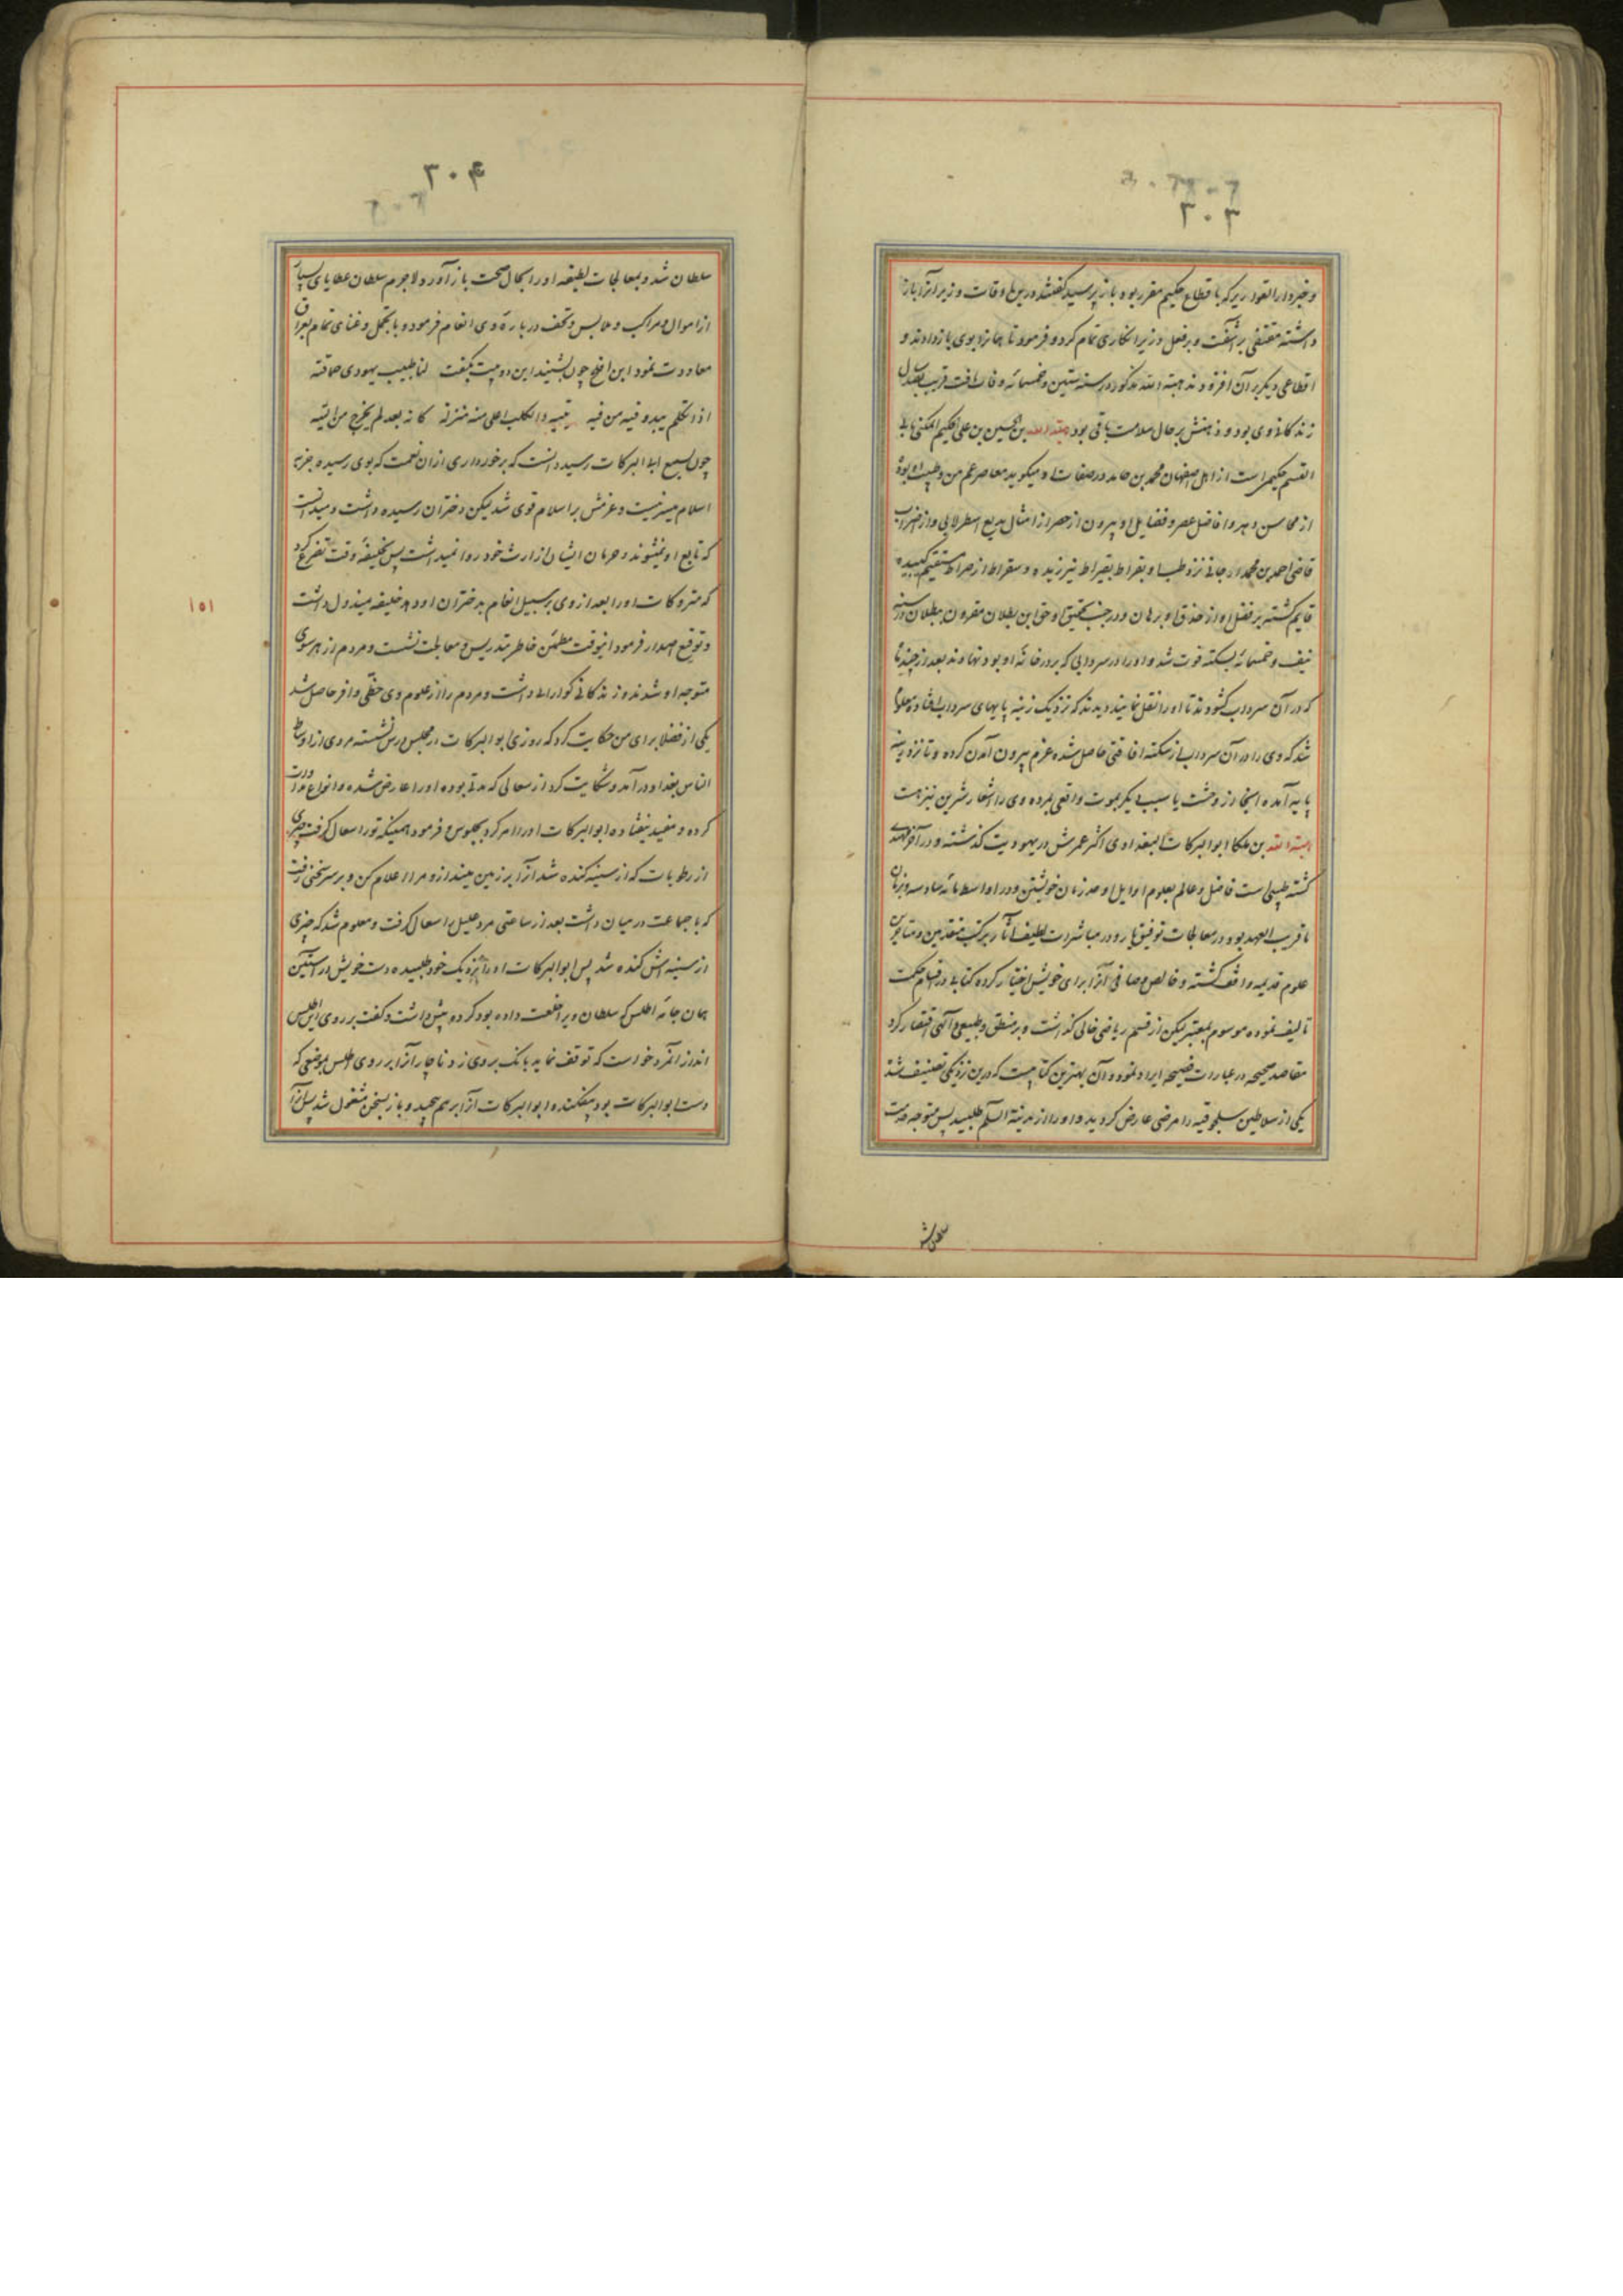 ۳۰۳
و خبر دار القواریر که باقطاع حکیم مقرر بود باز پرسید گفتند درین اوقات وزیر آنرا باز
داشته مقتفی برآشفت و بر فعل وزیر انکاری تمام کرد و فرمود تا همانرا بوی باز دادند و
اقطاعی دیگر بر آن افزودند هبة الله مذکور در سنه ستین و خمسمائه وفات یافت قریب بصد سال
زندگانی وی بود و ذهنش بر حال سلامت باقی بود هبة الله بن الحسین بن علی الحکیم المکنی بابی
القسم حکیمی است از اهل اصفهان محمد بن حامد در صفات او میگوید معاصر عم من و طبیب او بوده
از محاسن دهر و افاضل عصر و فضایل او بیرون از حصر از امثال بدیع اسطرلابی و از اضراب
قاضی احمد بن محمد ارجانی نزد طب او بقراط بقیراط نیرزیده و سقراط از صراط مستقیم
قایم گشته بر فضل او از حذق او برهان و در جنب تحقیق او حق ابن بطلان مقرون ببطلان در سنه
نیف و خمسمائه بسکته فوت شد و او را در سردابی که بر در خانه او بود نهادند بعد از چند ماه
که در آن سرداب گشودند تا او را نقل نمایند دیدند که نزدیک زینه پایهای سرداب افتاده معلوم
شد که وی را در آن سرداب از سکته افاقتی حاصل شده عزم بیرون آمدن کرده و تا نزد زینه
پایه آمده اینجا از وحشت یا سبب دیگر بموت واقعی مرده وی را اشعار شیرین نیز هست
هبة الله بن ملکا ابو البرکات البغدادی اکثر عمرش در یهودیت گذشته و در آخر مهتدی
گشته طبیبی است فاضل و عالم بعلوم اوایل اوحد زمان خویشتن و در اواسط مائه سادسه و بزمان
ما قریب العهد بود در معالجات توفیق یار و در مباشرات لطیف آثار بر کتب متقدمین و متاخرین
علوم قدیمه واقف گشته و خالص و صافی آنرا برای خویش اختیار کرده کتابی در اقسام حکمت
تالیف نموده موسوم بمعتبر لیکن از قسم ریاضی خالی گذاشت و بر منطق و طبیعی و الهی اقتصار کرد
مقاصد صحیحه در عبارات فصیحه ایراد نموده و آن بهترین کتابیست که درین نزدیکی تصنیف شد
یکی از سلاطین سلجوقیه را مرضی عارض گردید و او را از مدینة السلام طلبید پس متوجه خدمت
۳۰۴
سلطان شد و بمعالجات لطیفه او را بحال صحت باز آورد و لاجرم سلطان عطایای بسیار
از اموال و مراکب و ملابس و تحف در باره وی انعام فرمود و با تجمل و غنای تمام بعراق
معاودت نمود ابن افلح چون بشنید این دو بیت بگفت لنا طبیب یهودی حماقته
اذا تکلم یبدو فیه من فیه یتیه و الکلب اعلی منه منزلة کانه بعد لم یخرج من التیه
چون بسمع ابی البرکات رسید دانست که برخورداری از آن نعمت که بوی رسیده بغیر
اسلام میسر نیست و عزمش بر اسلام قوی شد لیکن دختران رسیده داشت و میدانست
که تابع او نمیشوند و حرمان ایشان از ارث خود روا نمیداشت پس بخلیفه وقت تضرع کرد
که متروکات او را بعد از وی بر سبیل انعام بدختران او دهد خلیفه مبذول داشت
و توقیع اصدار فرمود اینوقت مطمئن خاطر بتدریس و معالجت نشست و مردم از هر سوی
متوجه او شدند و زندگانی گوارایی داشت و مردم را از علوم وی حظی وافر حاصل شد
یکی از فضلا برای من حکایت کرد که روزی ابو البرکات در مجلس درس نشسته مردی از اوساط
الناس بغداد درآمد و شکایت کرد از سعالی که مدتی بوده او را عارض شده و انواع مداوات
کرده و مفید نیفتاده ابو البرکات او را امر کرد بجلوس و فرمود همینکه تو را سعال گرفت چیزی
از رطوبات که از سینه کنده شد آنرا بر زمین مینداز و مرا اعلام کن و بر سر سخنی رفت
که با جماعت در میان داشت بعد از ساعتی مرد علیل را سعال گرفت و معلوم شد که چیزی
از سینه اش کنده شد پس ابو البرکات او را بنزدیک خود طلبیده دست خویش در آستین
همان جامه اطلس که سلطان ویرا خلعت داده بود کرده پیش داشت و گفت بر روی این اطلس
انداز آنمرد خواست که توقف نماید بانک بر وی زد ناچار آنرا بر روی اطلس بموضعی که
دست ابو البرکات بود بیفکند و ابو البرکات آنرا بر هم پیچید و باز بسخن مشغول شد پس آنرا
۱۵۱